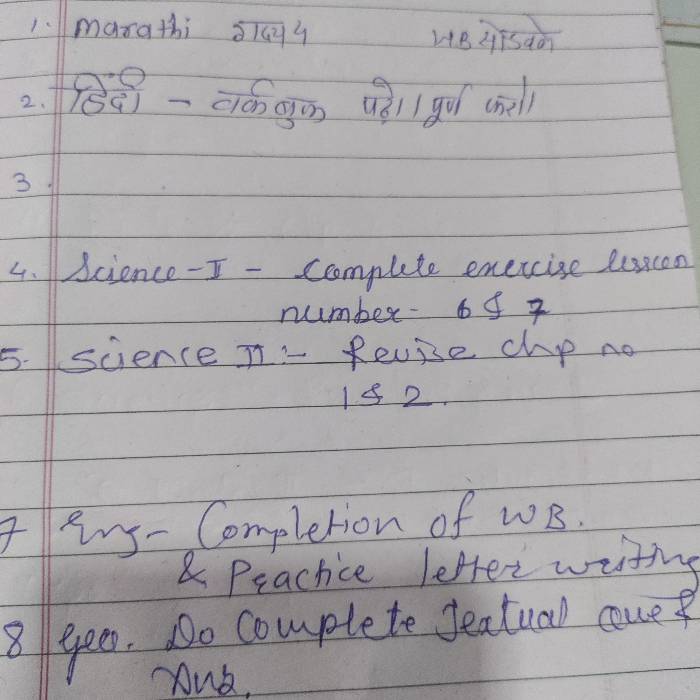 1. Marathi गद्य 5 WB सोडवणे
2. हिंदी - वर्कबुक पढ़ो।। पूर्ण करो।।
3.
4. Science-I - Complete exercise lesson
number- 6 & 7
5. Science II :- Revise chp no
1 & 2.
7 Eng- Completion of WB.
& Practice letter writing
8 Geo. Do Complete Textual Que &
Ans.